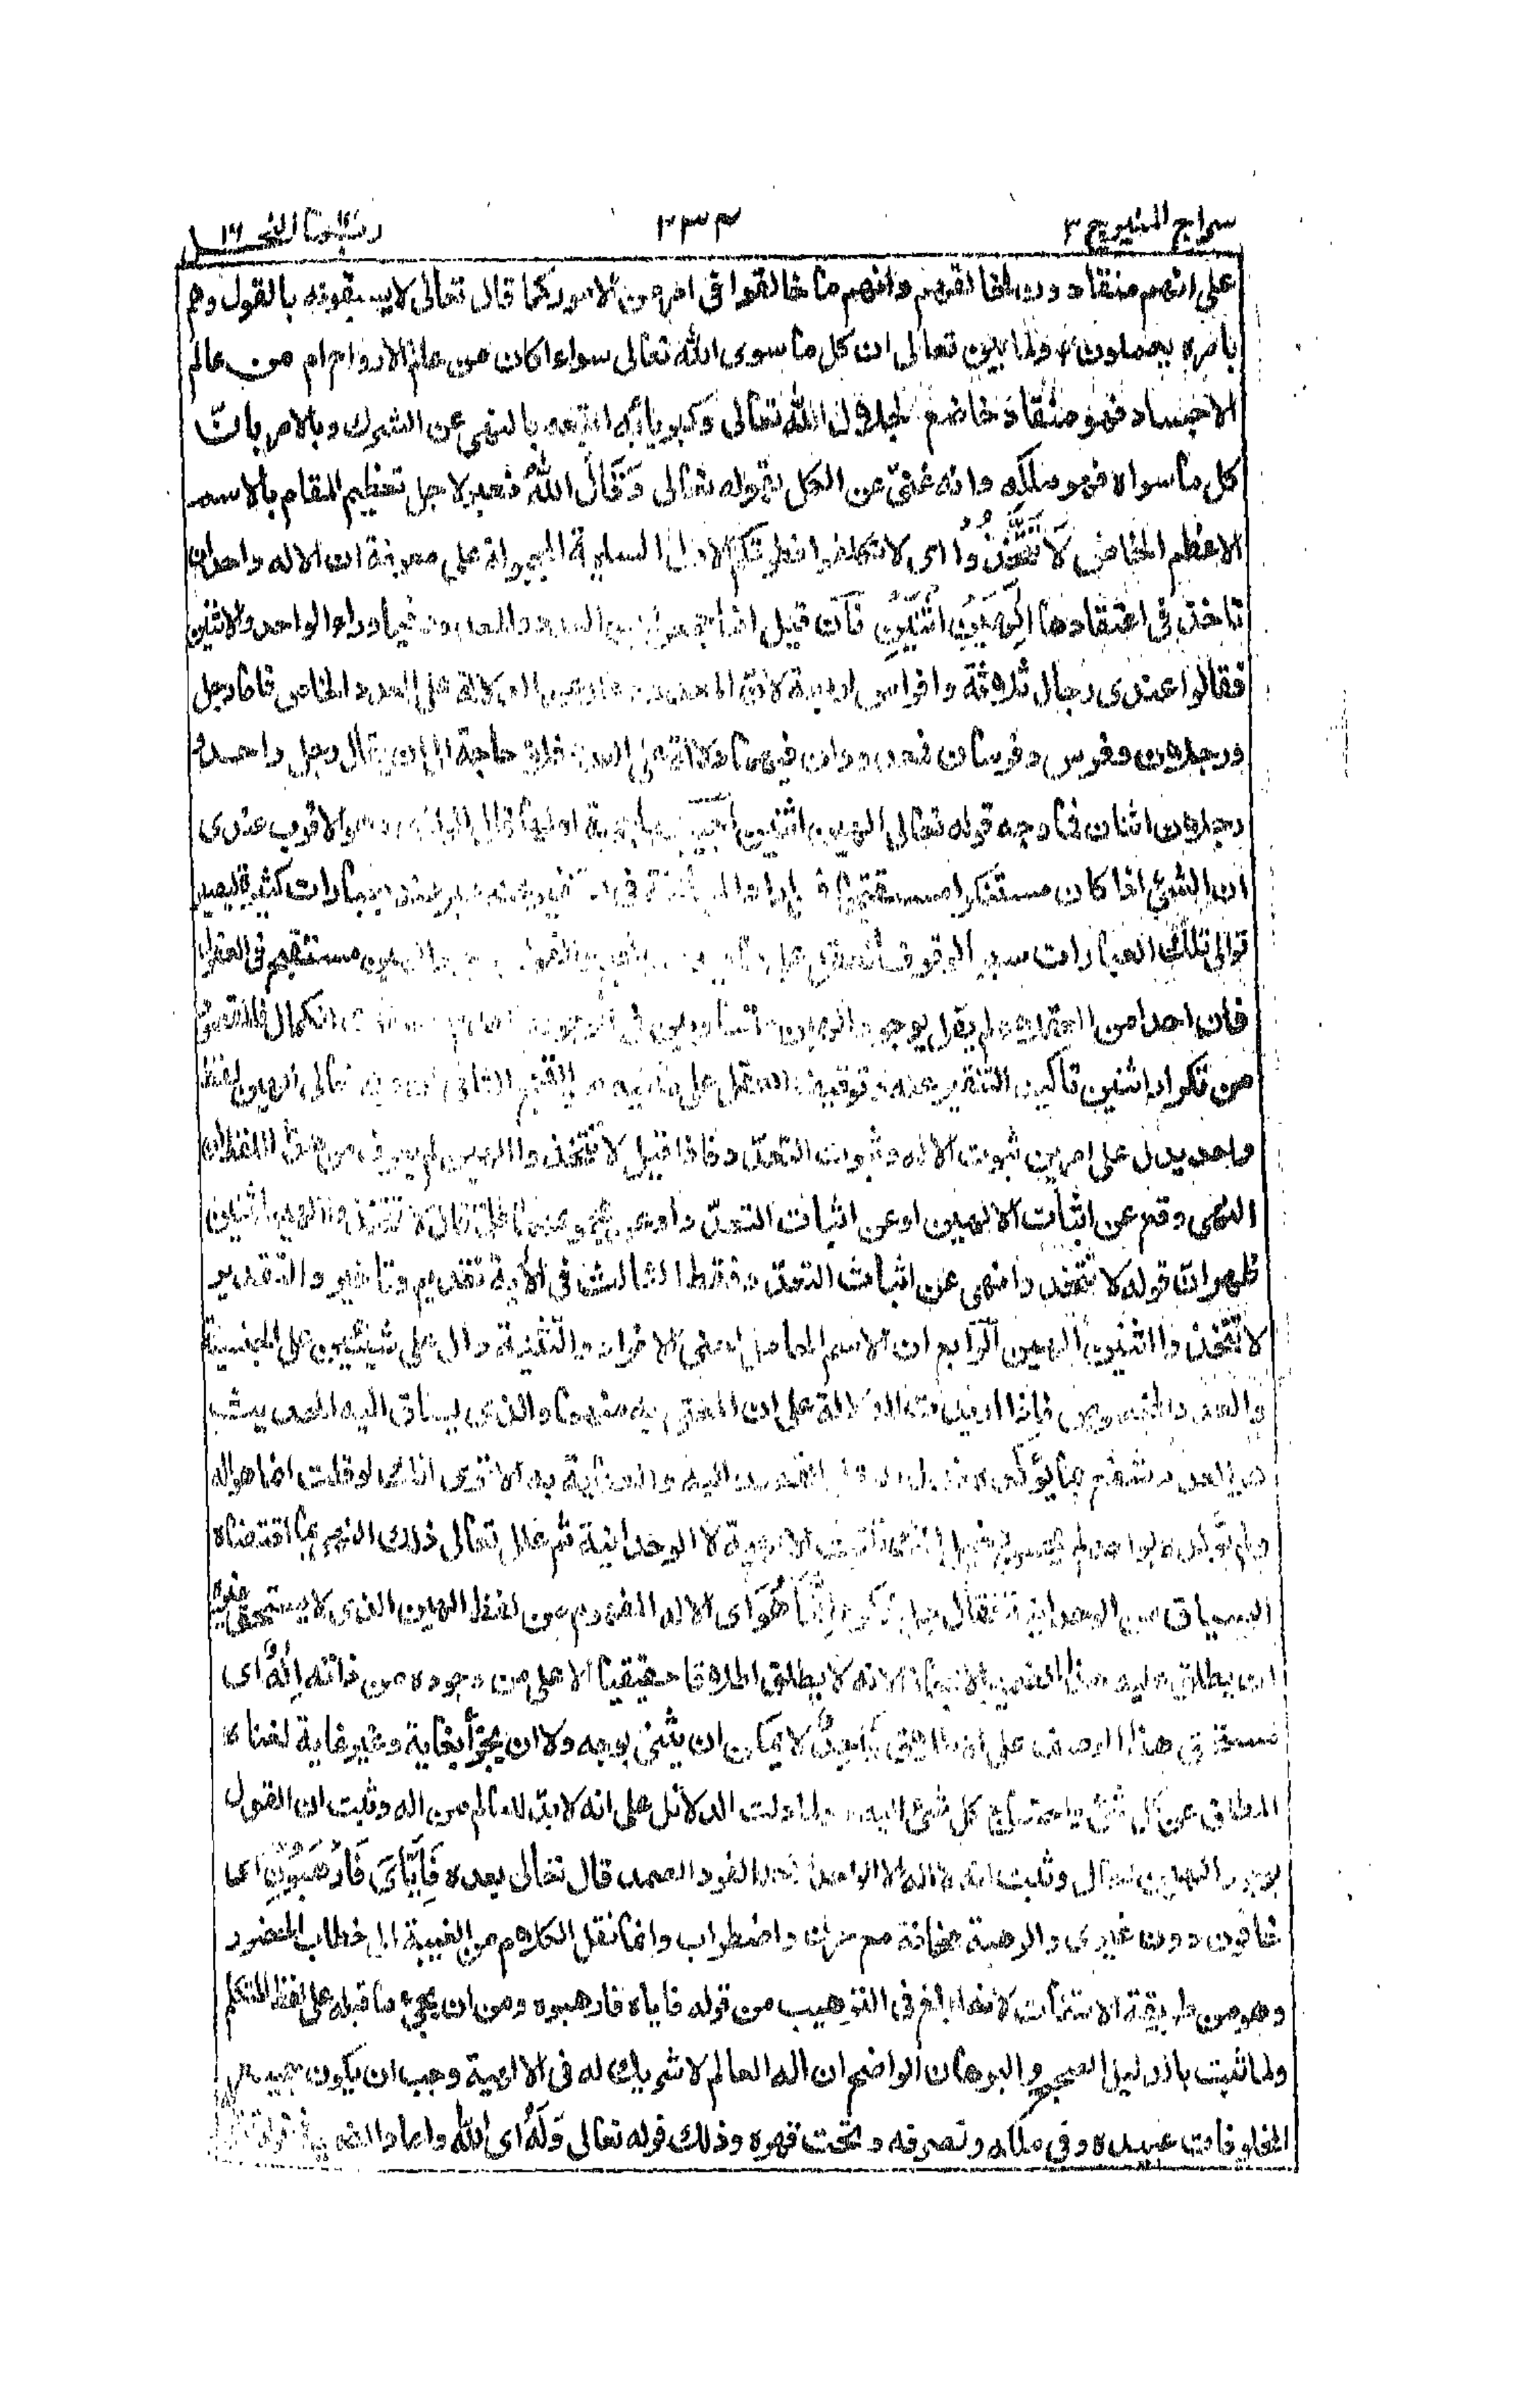 سراج المنير ج ٣ ٢٣٣ ربما النحل ١٦
على انهم منقادون لخالقهم وانهم ما خالفوا فى امر من الامور كما قال تعالى لا يسبقونه بالقول وهم
بامره يعملون ولما بين تعالى ان كل ما سوى الله تعالى سواء اكان من عالم الارواح ام من عالم
الاجساد فهو منقاد خاضع لجلال الله تعالى وكبريائه اتبعه بالنهى عن الشرك وبالامر بان
كل ما سواه فهو ملكه وانه غنى عن الكل بقوله تعالى وَقَالَ اللهُ فعبر لاجل تعظيم المقام بالاسم
الاعظم الخاص لَا تَتَّخِذُوا اى لا تكلفوا فطرتكم الاولى السليمة المجبولة على معرفة ان الاله واحد ان
تاخذ فى اعتقادها اِلٰهَيْنِ اثْنَيْنِ فان قيل انما جمعوا بين العدد والمعدود فيما وراء الواحد والاثنين
فقالوا عندى رجال ثلاثة وافراس اربعة لان المعدود عار عن الدلالة على العدد الخاص فاما رجل
ورجلان وفرس وفرسان فمعدودان فيهما دلالة على العدد فلا حاجة الى ان يقال رجل واحد و
رجلان اثنان فما وجه قوله تعالى الهين اثنين اجيب باجوبة اولها قال الرازى وهو الاقرب عندى
ان الشئ اذا كان مستنكرا مستقبحا فمن اراد المبالغة فى التنفير عنه عبر عنه بعبارات كثيرة ليصير
توالى تلك العبارات سببا لوقوف العقل على ما فيه من القبح والقول بوجود الهين مستقبح فى العقول
فان احدا من العقلاء لم يقل بوجود الهين متساويين فى الوجود الكمال فالمقصود
من تكرار اثنين تاكيد التنفير عنه وتوقيف العقل على ما فيه من القبح الثانى ان قوله تعالى الهين لفظ
واحد يدل على امرين ثبوت الاله وثبوت التعدد فاذا قيل لا تتخذوا الهين لم يعرف من هذا اللفظ ان
النهى وقع عن اثبات الالهين او عن اثبات التعدد او عن مجموعهما فلما قال لا تتخذوا الهين اثنين
ظهر ان قوله لا تتخذوا نهى عن اثبات التعدد فقط الثالث فى الآية تقديم وتاخير والتقدير
لا تتخذوا اثنين الهين الرابع ان الاسم الحامل لمعنى الافراد والتثنية دال على شيئين على الجنسية
والعدد المخصوص فاذا اريد الدلالة على ان المعنى به منهما والذى يساق اليه الحديث
هو العدد شفع بما يؤكده فدل به على القصد اليه والعناية به الا ترى انك لو قلت انما هو اله
ولم تؤكده بواحد لم يحسن وخيل انك تثبت الالهية لا الوحدانية ثم علل تعالى ذلك النهى بما اقتضاه
السياق من الوحدانية فقال اِنَّمَا هُوَ اى الاله المفهوم من لفظ الهين الذى لا يستحق غيره
ان يطلق عليه هذا الضمير الا مجازا لانه لا يطلق اطلاقا حقيقيا الا على من وجوده من ذاته اِلٰهٌ اى
مستحق هذا الوصف على الاطلاق وَاحِدٌ لا يمكن ان يثنى بوجه ولا ان يجزأ بغاية وغير غاية لغناه
المطلق عن كل شئ واحتياج كل شئ اليه ولما دلت الدلائل على انه لا بد للعالم من اله وثبت ان القول
بوجود الهين محال وثبت انه لا اله الا الواحد الاحد الفرد الصمد قال تعالى بعده فَاِيَّاىَ فَارْهَبُوْنِ اى
خافون دون غيرى والرهبة مخافة مع حزن واضطراب وانما نقل الكلام من الغيبة الى خطاب الحضور
وهو من طريقة الالتفات لانه ابلغ فى الترهيب من قوله فاياه فارهبوه ومن ان يجئ ما قبله على لفظ المتكلم
ولما ثبت بالدليل الصحيح والبرهان الواضح ان اله العالم لا شريك له فى الالهية وجب ان يكون جميع
المخلوقات عبيده وفى ملكه وتصرفه وتحت قهره وذلك قوله تعالى وَلَهٗ اى الله